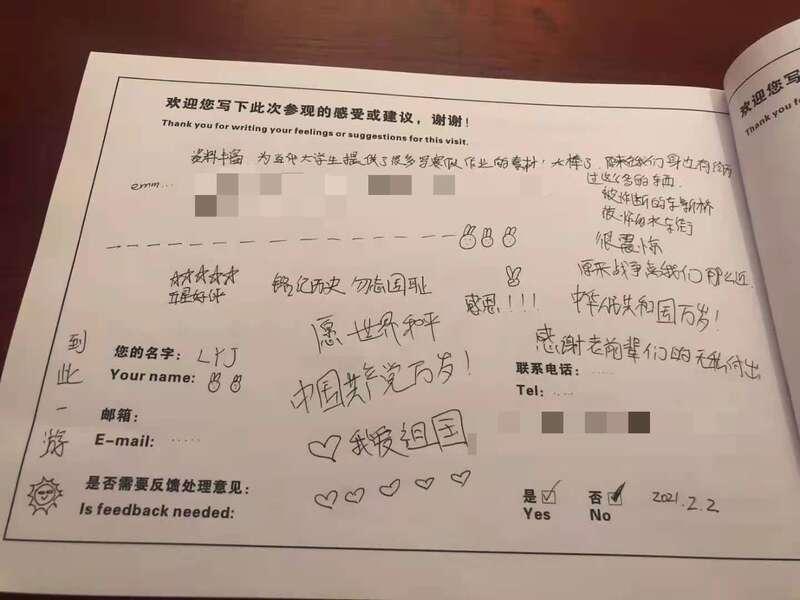 欢迎您写下此次参观的感受或建议，谢谢！
Thank you for writing your feelings or suggestions for this visit.
资料丰富 为五邑大学生提供了很多写寒假作业的素材！太棒了
原来我们身边有经历
过这么多的东西.
emm...
被炸断的
被炸的水车街
很震惊
原来战争离我们那么近.
五星好评
铭记历史 勿忘国耻
感恩！！！
中华人民共和国万岁！
愿世界和平
感谢老前辈们的无私付出
到此一游
您的名字： LYJ
Your name:
中国共产党万岁！
联系电话： .....
Tel: .....
邮箱：
E-mail: .....
我爱祖国
是否需要反馈处理意见：
Is feedback needed:
是 否 2021.2.2
Yes No
欢迎您写
Thank you for